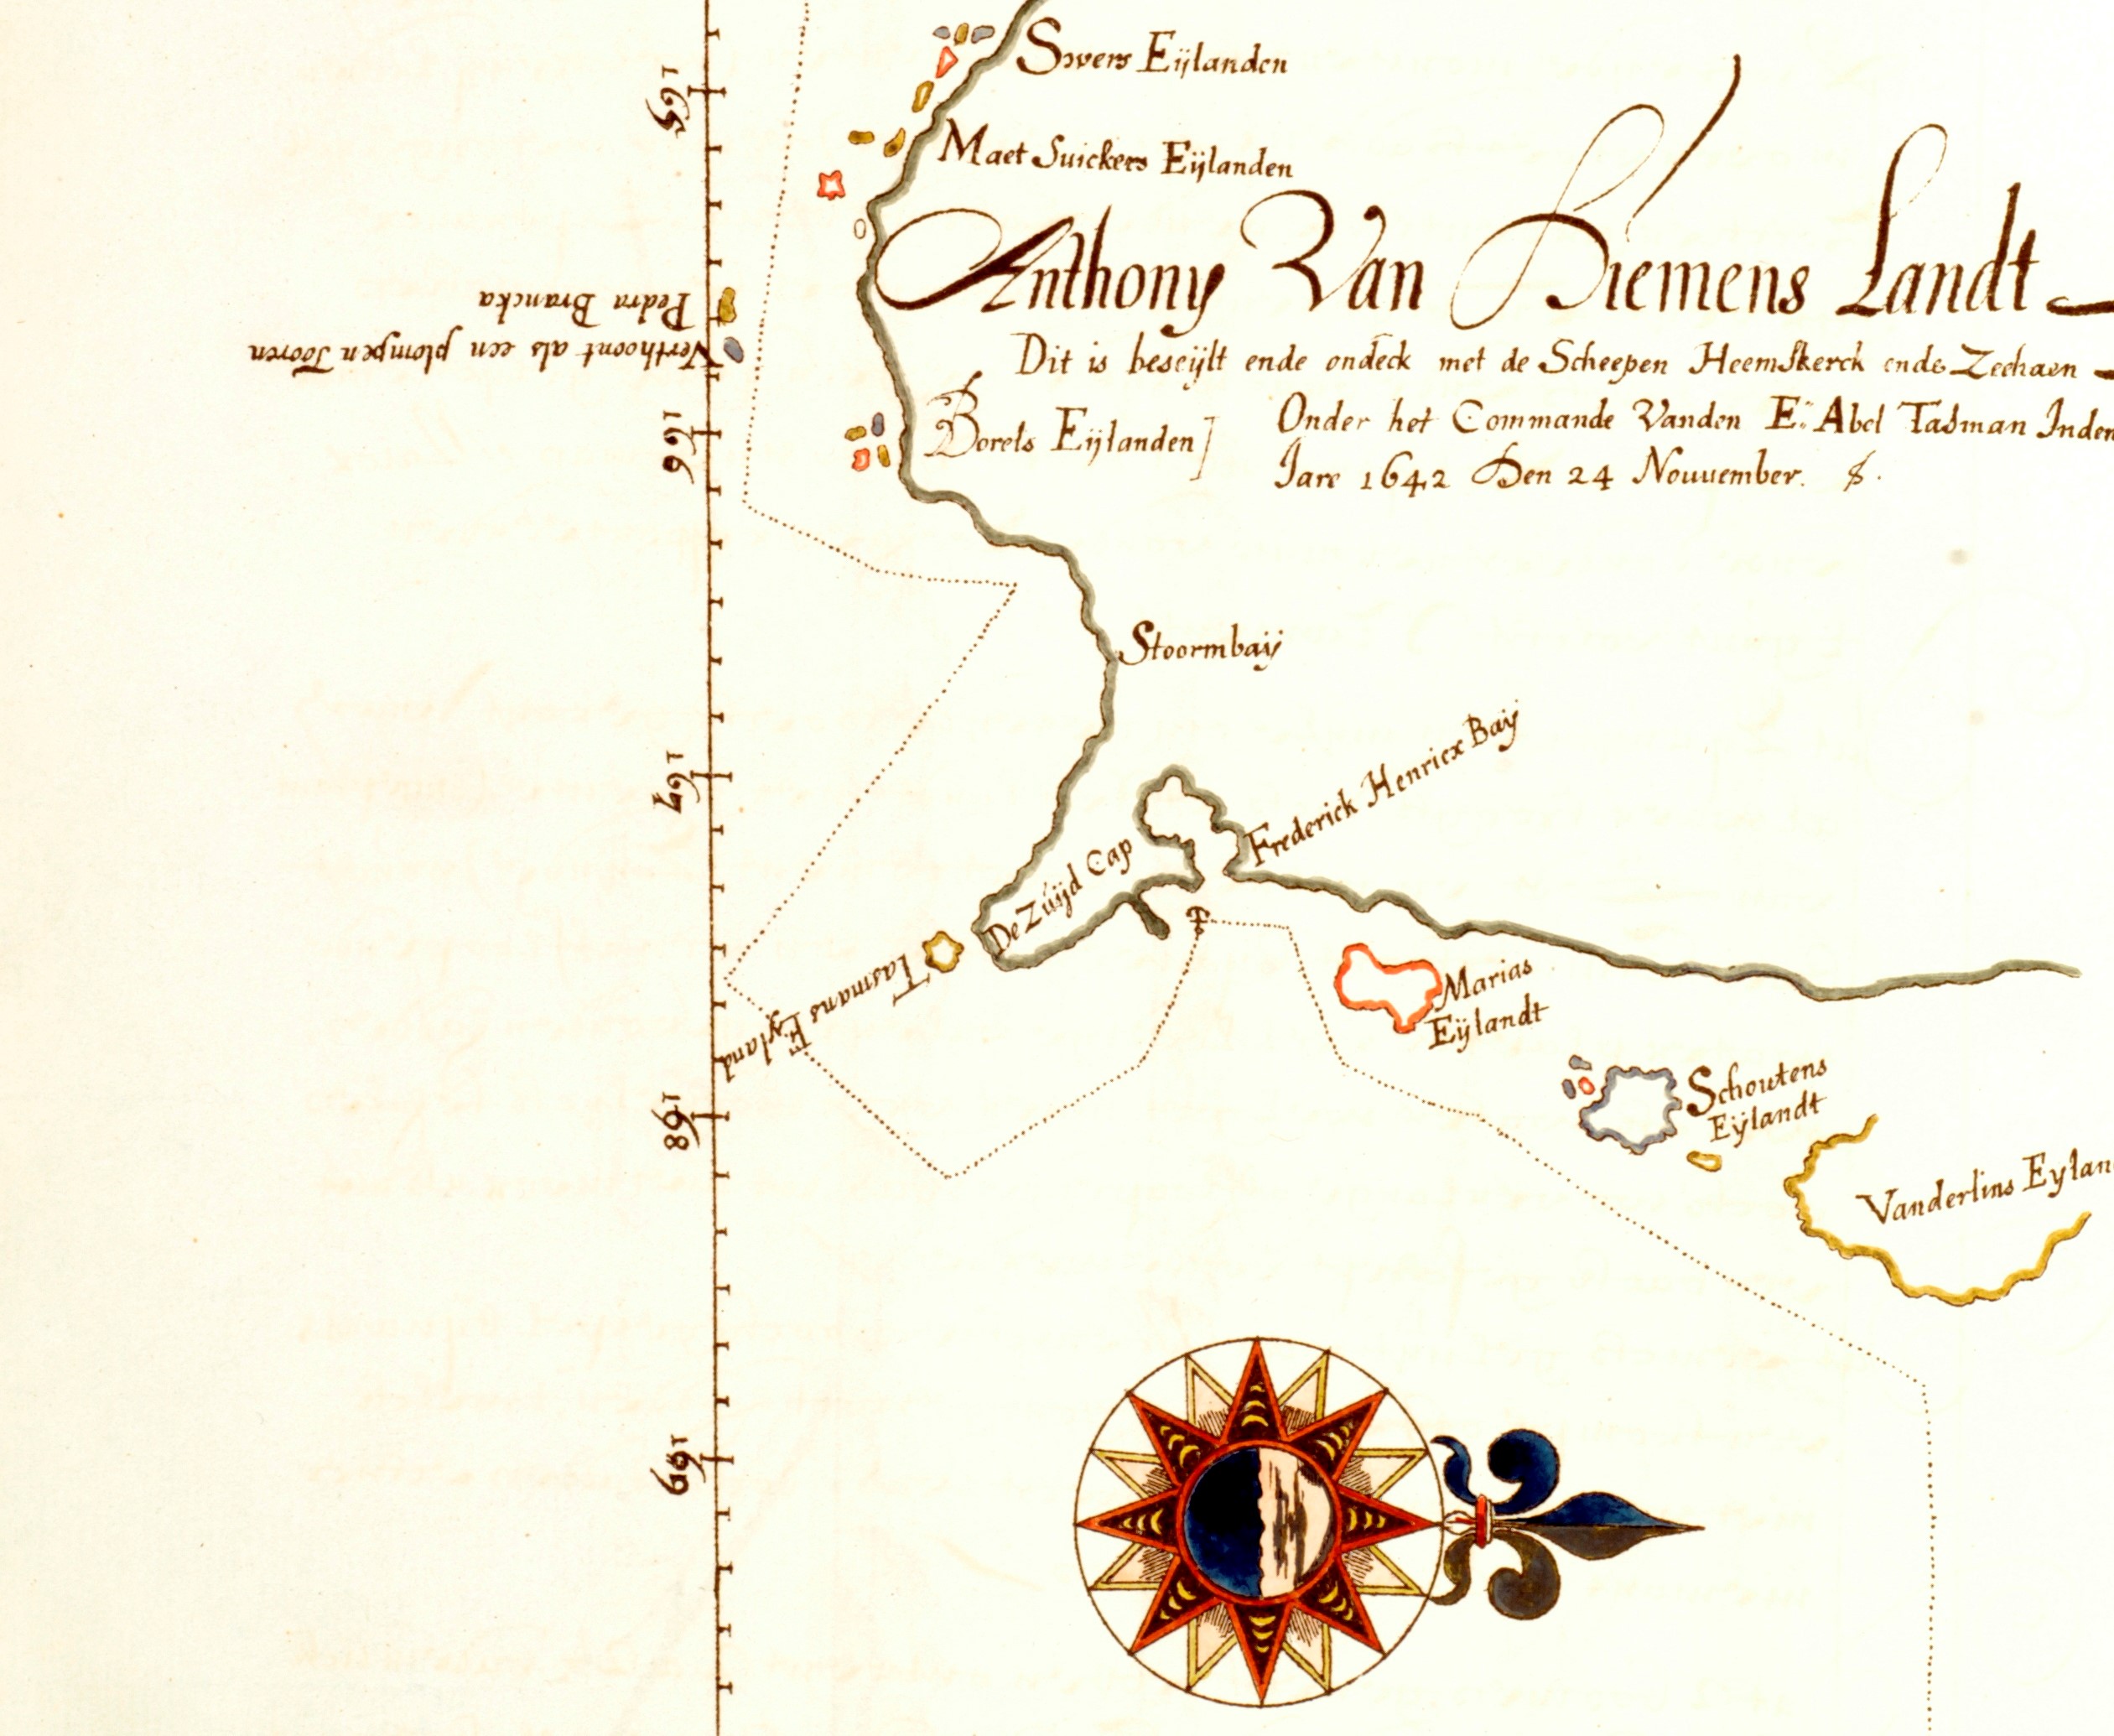 Swers Eijlanden
165
Maet Suickers Eijlanden
Anthony Van Diemens Landt
Pedra Brancka
Verthoont als een plompen Tooren
Dit is beseijlt ende ondeck met de Scheepen Heemskerck ende Zeehaen
Onder het Commande Vanden E: Abel Tasman Inden
Jare 1642 Den 24 Nouuember.
Borels Eijlanden
166
Stoormbaij
167
Frederick Henricx Baij
De Zuijd Cap
Tasmans Eyland
Marias
Eijlandt
168
Schoutens
Eijlandt
Vanderlins Eylan
169